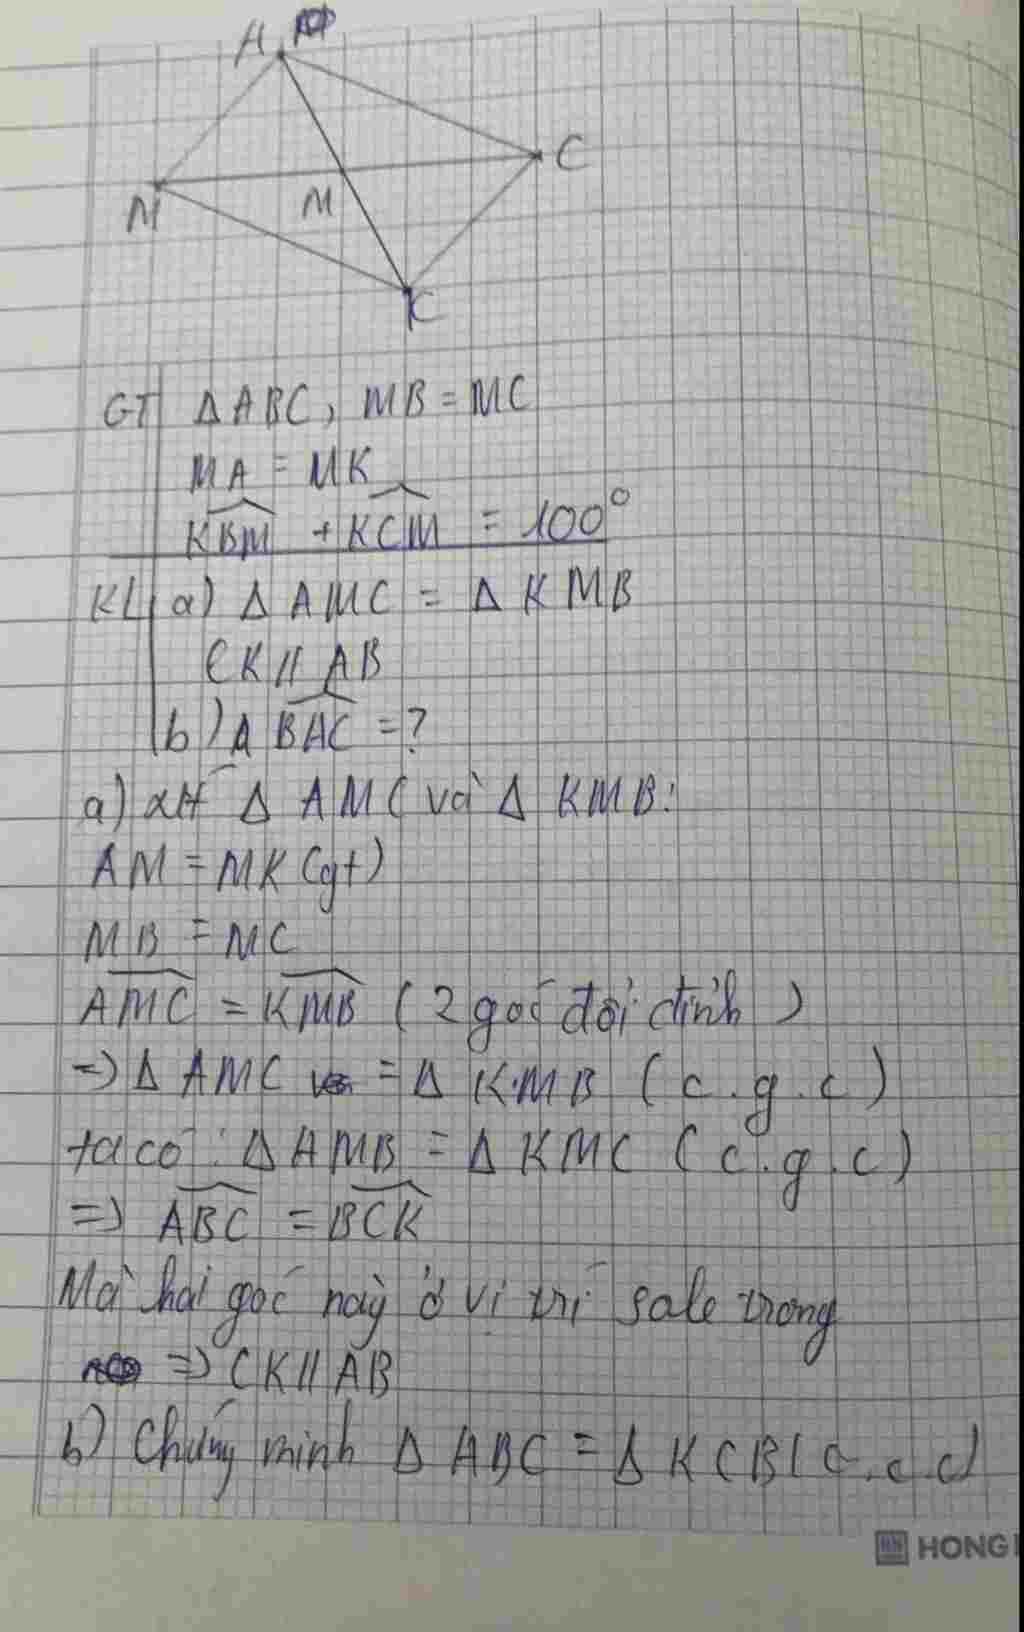 A
C
M
M
K
GT ΔABC, MB = MC
MA = MK
KBM + KCM = 100°
KL a) Δ AMC = Δ KMB
CK // AB
b) Δ BAC = ?
a) xét Δ AMC và Δ KMB:
AM = MK (gt)
MB = MC
AMC = KMB (2 góc đối đỉnh)
=> Δ AMC = Δ KMB (c.g.c)
ta có: Δ AMB = Δ KMC (c.g.c)
=> ABC = BCK
Mà hai góc này ở vị trí sole trong
=> CK // AB
b) Chứng minh Δ ABC = Δ KCB (c.c.c)
HONG